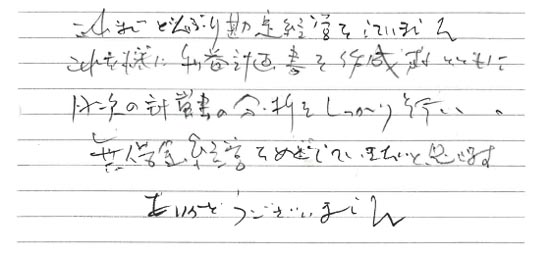 これまで どんぶり勘定経営をしていました
これを機に 利益計画書を作成するとともに
月次の計算書の分析をしっかり行い、
無借金経営をめざしていきたいと思います
ありがとうございました